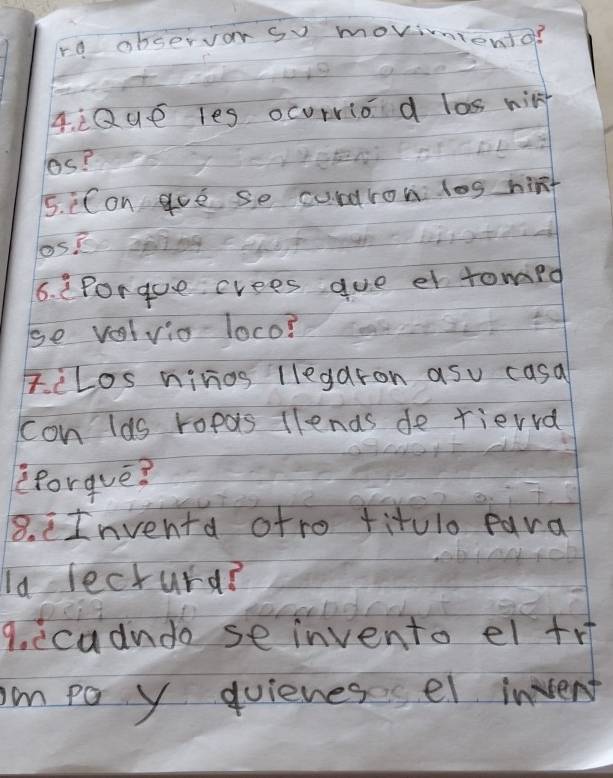 ra observar su movimiento?
4.¿Qué les ocurrió a los niñ
os?
5.¿Con qué se curaron los niñ
os?
6.¿Porque crees que el tompo
se volvio loco?
7.¿Los niños llegaron asu casa
con las ropas llenas de tierra
¿Porqué?
8.¿Inventa otro titulo para
la lectura?
9.¿cuando se invento el tr
om po y quienes el invent